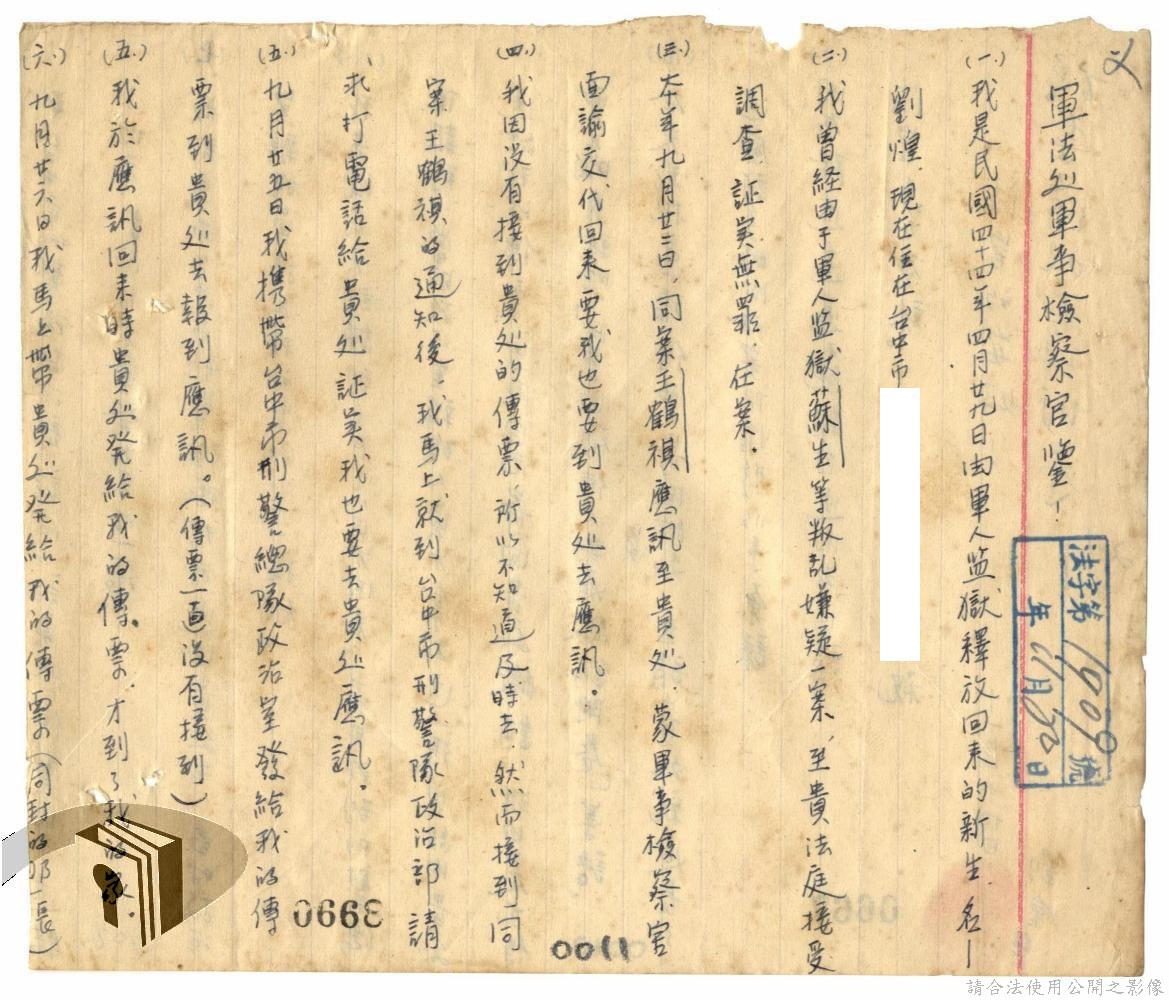 軍法処軍事檢察官鑒！
(一)我是民國四十四年四月廿九日由軍人监獄釋放回来的新生．名一
劉煌．現在住在台中市
(二)我曾経由于軍人监獄蘇生等叛乱嫌疑一案，至貴法庭接受
調查．証実無罪．在案．
(三)本年九月廿二日．同案王鶴祺應訊至貴処．蒙軍事檢察官
面諭交代回来要我也要到貴処去應訊。
(四)我因没有接到貴処的傳票所以不知道及時去．然而接到同
案王鶴祺的通知後．我馬上就到台中市刑警隊政治部請
求打電話給貴処証実我也要去貴処應訊。
(五)九月廿五日我携帶台中市刑警總隊政治室發給我的傳
票到貴処去報到應訊。(傳票一直没有接到)
(五)我於應訊回来時貴処発給我的傳票．才到了我的家．
(六)九月廿六日我馬上帶貴処発給我的傳票(同封的那一張)
法字第1909號
年11月30日
0663
0011
請合法使用公開之影像